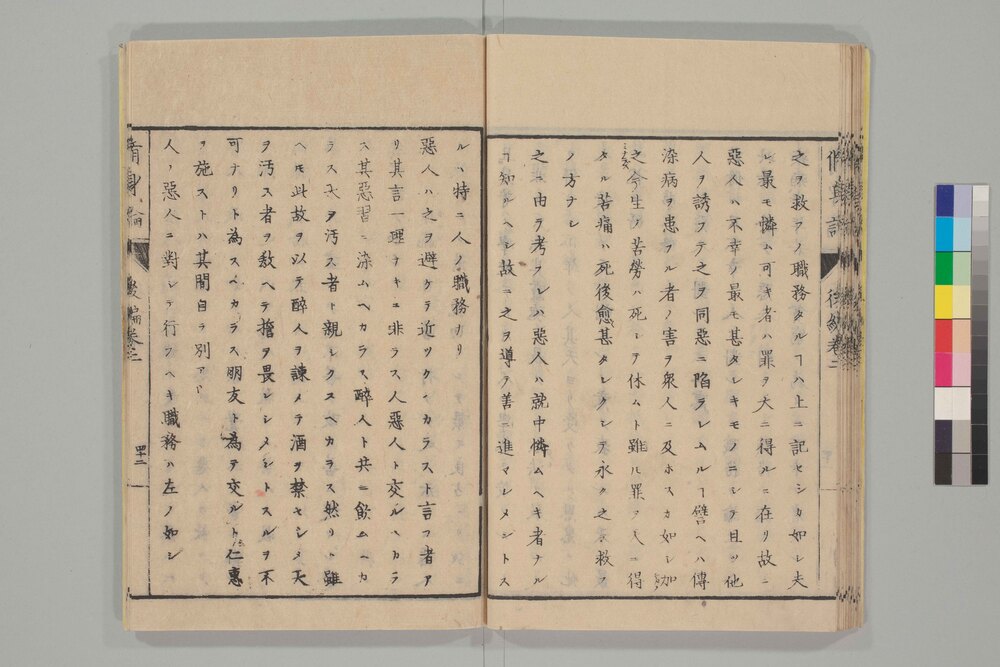 之ヲ救フノ職務タルヿハ上ニ記セシカ如シ夫
レ最モ憐ム可キ者ハ罪ヲ天ニ得ルニ在リ故ニ
惡人ハ不幸ノ最モ甚タシキモノニシテ且ツ他
人ヲ誘フテ之ヲ同惡ニ陷ラシムルヿ譬ヘハ傳
染病ヲ患フル者ノ害ヲ衆人ニ及ホスカ如シ加
之今生ノ苦勞ハ死シテ休ムト雖ル罪ヲ天ニ得
タル苦痛ハ死後愈甚タシクシテ永ク之ヲ救フ
ノ方ナシ
之ニ由ラ考フレハ惡人ハ就中憐ムヘキ者ナル
ヿ知ルヘシ故ニ之ヲ導テ善ニ進マシメントス
ルハ特ニ人ノ職務ナリ
惡人ハ之ヲ避ケテ近ツクヘカラスト言フ者ア
リ其言一理ナキニ非ラス人惡人ト交ルヘカラ
ス其惡習ニ染ムヘカラス醉人ト共ニ飲ムヘカ
ラス天ヲ汚ス者ト親シクスヘカラス然リト雖
ヘモ此故ヲ以テ醉人ヲ諫メテ酒ヲ禁セシメ天
ヲ汚ス者ヲ敎ヘテ擔ヲ畏レシメントスルヲ不
可ナリト為スヘカラス朋友ト為テ交ルト仁惠
ヲ施ストハ其間自ラ別アリ
人ノ惡人ニ對シテ行フヘキ職務ハ左ノ如シ
後編卷二
四十二